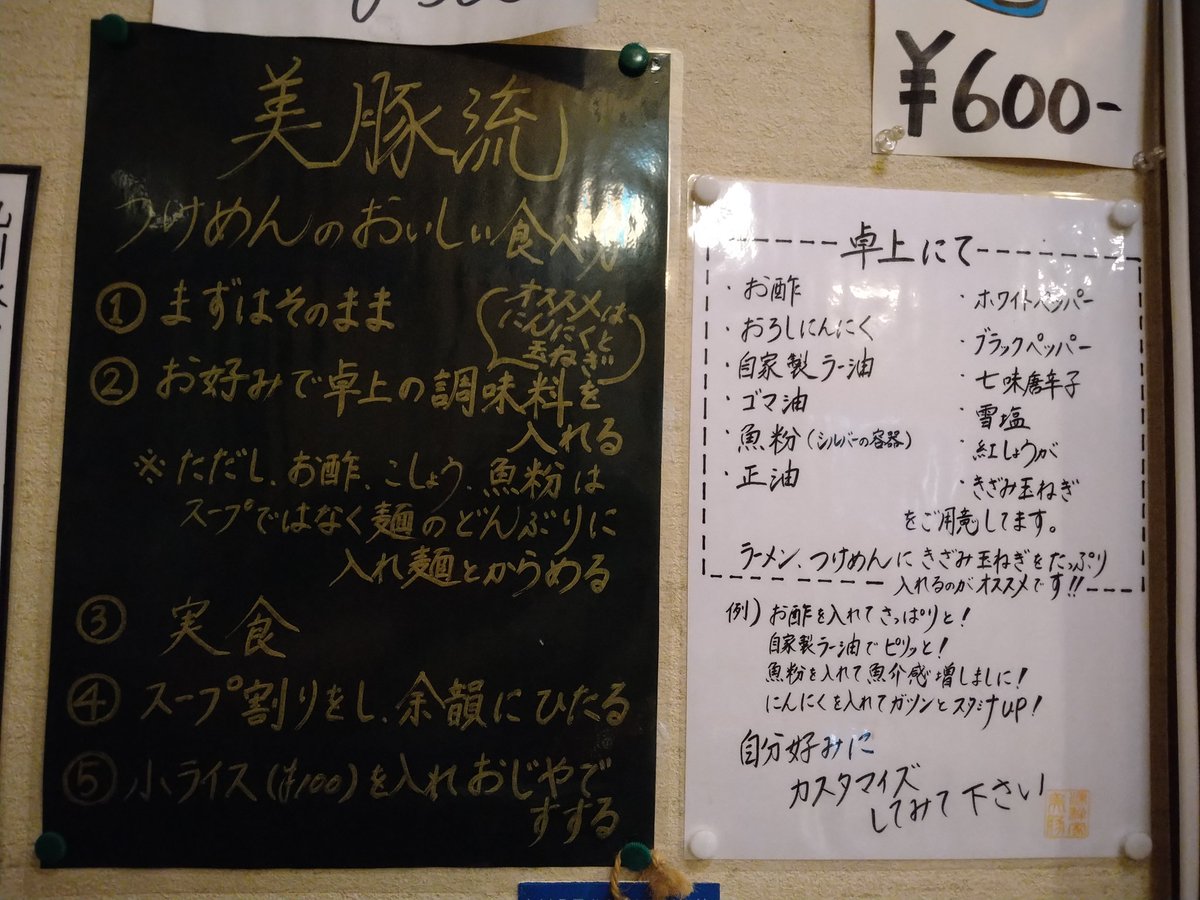 美豚流
つけめんのおいしい食べ方
① まずはそのまま
(オススメは
にんにくと
玉ねぎ)
② お好みで卓上の調味料を
入れる
※ ただし、お酢、こしょう、魚粉は
スープではなく麺のどんぶりに
入れ麺とからめる
③ 実食
④ スープ割りをし、余韻にひたる
⑤ 小ライス(¥100)を入れおじやで
すする
¥600-
卓上にて
・お酢
・おろしにんにく
・自家製ラー油
・ゴマ油
・魚粉(シルバーの容器)
・正油
・ホワイトペッパー
・ブラックペッパー
・七味唐辛子
・雪塩
・紅しょうが
・きざみ玉ねぎ
をご用意してます。
ラーメン、つけめんにきざみ玉ねぎをたっぷり
入れるのがオススメです!!
例) お酢を入れてさっぱりと!
自家製ラー油でピリッと!
魚粉を入れて魚介感増しましに!
にんにくを入れてガツンとスタミナUP!
自分好みに
カスタマイズ
してみて下さい